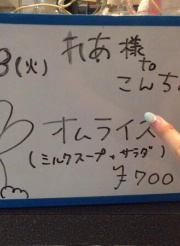 3(火)
れあ様
to
こんち
オムライス
(ミルクスープ+サラダ)
¥700